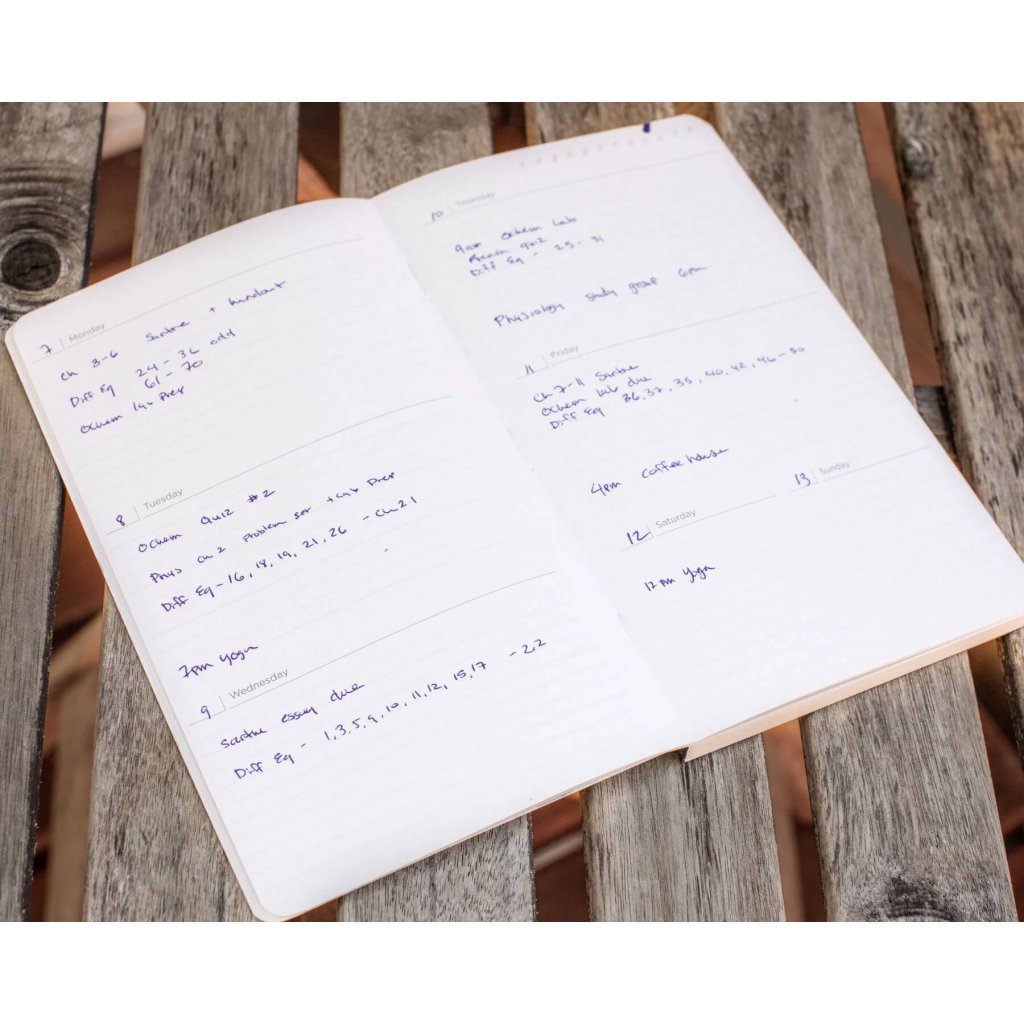 7 Monday
Ch 3-6 Sartre + handout
Diff Eq 24 - 36 odd
61 - 70
Ochem lab Prep
8 Tuesday
Ochem Quiz #2
Phys Ch 2 Problem set + Lab Prep
Diff Eq - 16, 18, 19, 21, 26 - Ch 2.1
7pm Yoga
9 Wednesday
Sartre essay due
Diff Eq - 1, 3, 5, 9, 10, 11, 12, 15, 17 - 2.2
10 Thursday
9am Ochem Lab
quiz
Diff Eq - 25 - 31
Physiology study group 6pm
11 Friday
Ch 7-11 Sartre
Ochem lab due
Diff Eq 36, 37, 35, 40, 42, 46 - 50
4pm coffee house
12 Saturday
12 pm Yoga
13 Sunday